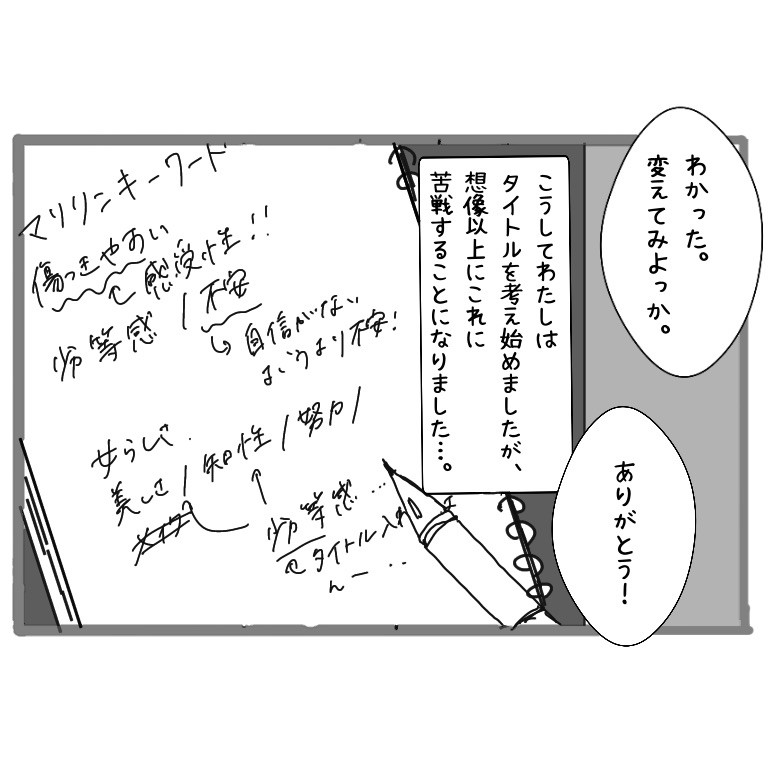 わかった。
変えてみよっか。
ありがとう！
こうしてわたしは
タイトルを考え始めましたが、
想像以上にこれに
苦戦することになりました…。
マリリンキーワード
傷つきやあい
感受性!!
劣等感 / 不安
自信がない
不安!
女らしさ
美しさ / 知性 / 努力 /
劣等感…
タイトル入れ
んー…